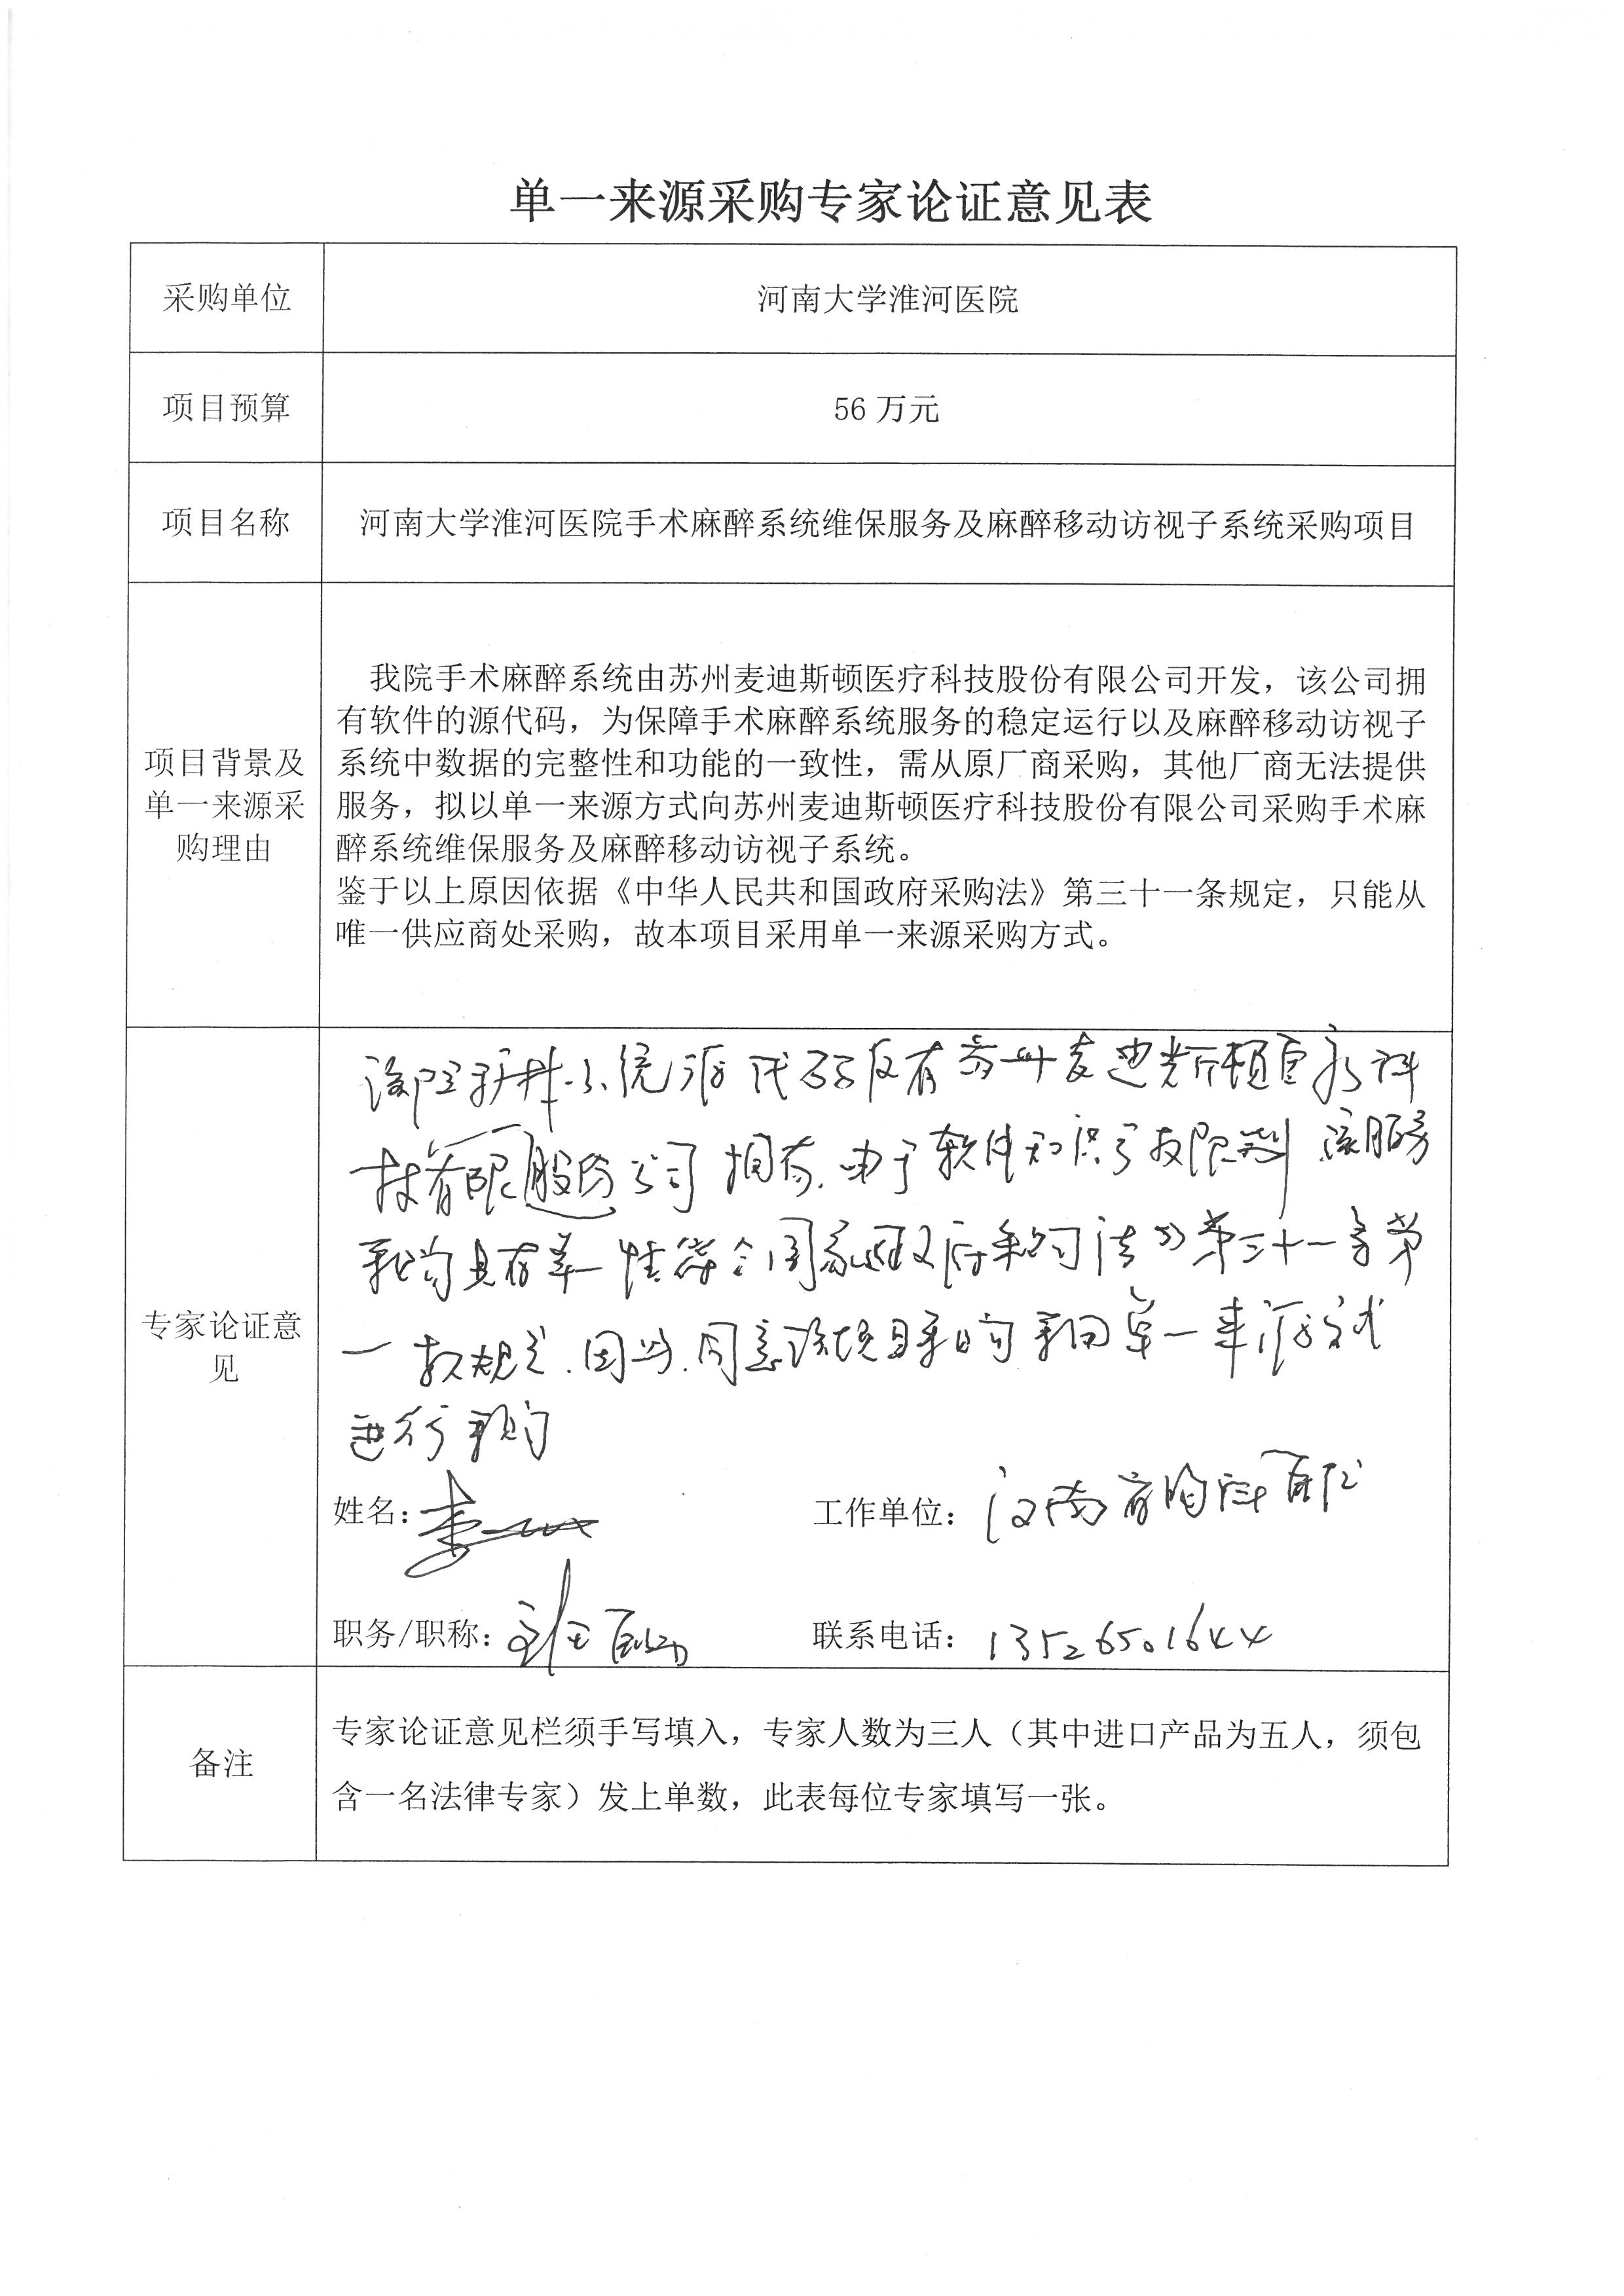 单一来源采购专家论证意见表
采购单位
河南大学淮河医院
项目预算
56 万元
项目名称
河南大学淮河医院手术麻醉系统维保服务及麻醉移动访视子系统采购项目
项目背景及
单一来源采
购理由
我院手术麻醉系统由苏州麦迪斯顿医疗科技股份有限公司开发，该公司拥
有软件的源代码，为保障手术麻醉系统服务的稳定运行以及麻醉移动访视子
系统中数据的完整性和功能的一致性，需从原厂商采购，其他厂商无法提供
服务，拟以单一来源方式向苏州麦迪斯顿医疗科技股份有限公司采购手术麻
醉系统维保服务及麻醉移动访视子系统。
鉴于以上原因依据《中华人民共和国政府采购法》第三十一条规定，只能从
唯一供应商处采购，故本项目采用单一来源采购方式。
专家论证意
见
系统源代码仅有苏州麦迪斯顿医疗科
技有限股份公司拥有，由于软件知识产权限制 该服务
采购具有单一性符合国家政府采购法第三十一条第
一款规定，因此，同意该项目采购采用单一来源方式
进行采购
姓名：
工作单位：河南省胸科医院
职务/职称：
联系电话：13526501644
备注
专家论证意见栏须手写填入，专家人数为三人（其中进口产品为五人，须包
含一名法律专家）发上单数，此表每位专家填写一张。